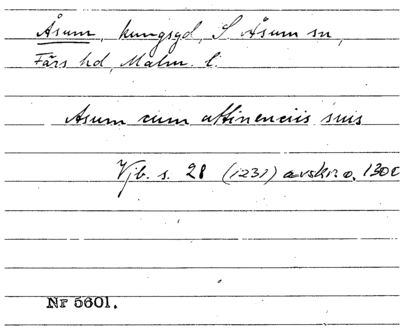 Åsum, kungsgd, S Åsum sn,
Färs hd, Malm. l.
Asum cum attinenciis suis
Vjb. s. 28 (1231) avskr o. 1300
Nr 5601.